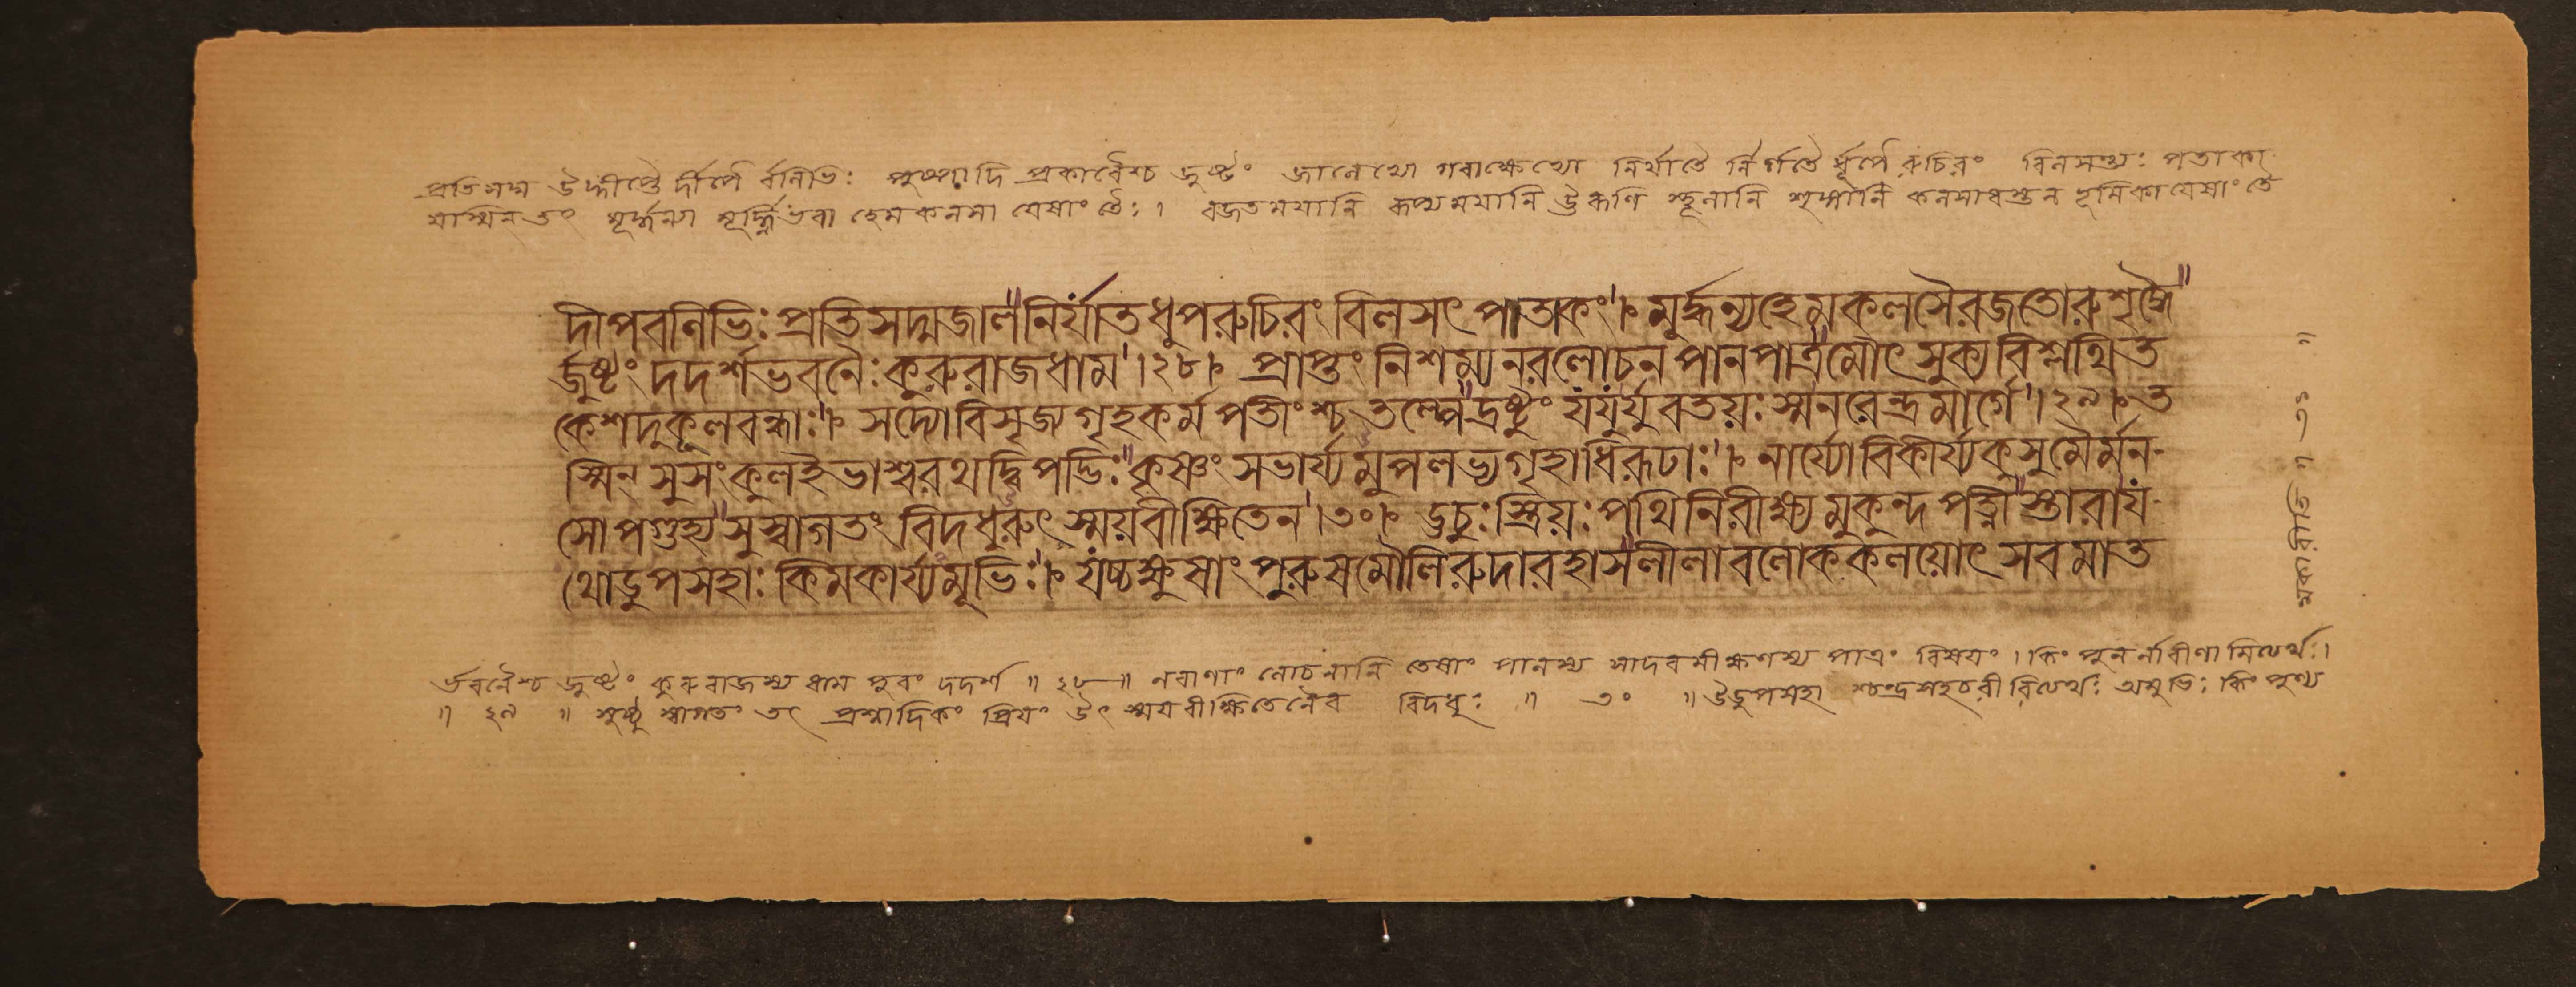 প্রতিসদ্ম উদ্দীপ্তৈ র্দীপৈ র্বলিভিঃ পুষ্পাদি প্রকারৈশ্চ জুষ্টং জালেভ্যো গবাক্ষেভ্যো নির্যাতৈ র্নির্গতৈ র্ধূপৈ রুচিরং বিলসন্ত্যঃ পতাকা
যস্মিন্ তং মূর্দ্ধন্যা মূর্দ্ধ্নিভবা হেম কলসা যেষাং তৈঃ। রজতময়ানি রূপ্যময়ানি উরূণি স্থূলানি শৃঙ্গানি কলসাধস্তন ভূমিকা যেষাং তৈ
দীপবলিভিঃ প্রতিসদ্মজাল নির্যাতধুপরুচিরং বিলসৎ পাতাকং। মুর্দ্ধন্যহেমকলসৈরজতোরুশৃঙ্গৈ
র্জুষ্টং দদর্শভবনৈঃ কুরুরাজধাম।২৮। প্রাপ্তং নিশম্যনরলোচন পানপাত্রমৌৎসুক্যবিশ্লথিত
কেশদুকূলবন্ধাঃ। সদ্যোবিসৃজ্যগৃহকর্ম পতীংশ্চ তল্পেদ্রষ্টুং যযুর্যুবতয়ঃ স্মনরেন্দ্রমার্গে।২৯। ত
স্মিন্ সুসংকুলইভাশ্বরথদ্বিপদ্ভিঃ কৃষ্ণং সভার্য্যমুপলভ্যগৃহাধিরূঢাঃ। নার্য্যোবিকীর্য্যকুসুমৈর্মন-
সোপগুহ্য সুস্বাগতং বিদধুরুৎস্ময়বীক্ষিতেন।৩০। উচুঃ স্ত্রিয়ঃ পথিনিরীক্ষ্যমুকুন্দপত্নীস্তারায-
থোডুপসহাঃ কিমকার্য্যমূভিঃ। যচ্চক্ষুষাং পুরুষমৌলিরুদারহাসলীলাবলোককলয়োৎসবমাত
র্ভবনৈশ্চ জুষ্টং কুরুরাজস্য ধাম পুরং দদর্শ॥ ২৮॥ নরাণাং লোচনানি তেষাং পানস্য সাদরবীক্ষণস্য পাত্রং বিষয়ং। কিং পুনর্নারীণামিত্যর্থঃ।
॥ ২৯ ॥ সুষ্ঠু স্বাগতং তৎ প্রশ্নাদিকং প্রিয়ং উৎ স্ময়বীক্ষিতেনৈব বিদধুঃ ॥ ৩০ ॥ উডুপসহা শ্চন্দ্রসহচরী রিত্যর্থঃ অমুভিঃ কিং পুণ্য
মকারীতি। ৩১ ।